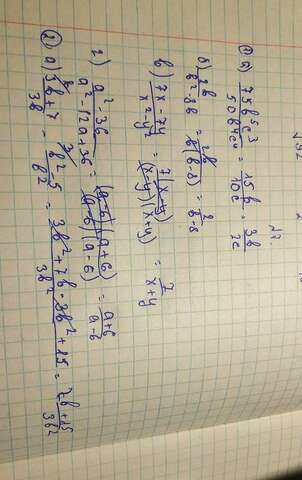 ① а) 75b⁵c³/50b⁴c⁴ = 15b/10c = 3b/2c
б) 2b/b²-8b = 2b/b(b-8) = 2/b-8
в) 7x-7y/x²-y² = 7(x-y)/(x-y)(x+y) = 7/x+y
г) a²-36/a²-12a+36 = (a-6)(a+6)/(a-6)(a-6) = a+6/a-6
② а) 3b+7/3b - b²-5/b² = 3b²+7b-3b²+15/3b² = 7b+15/3b²